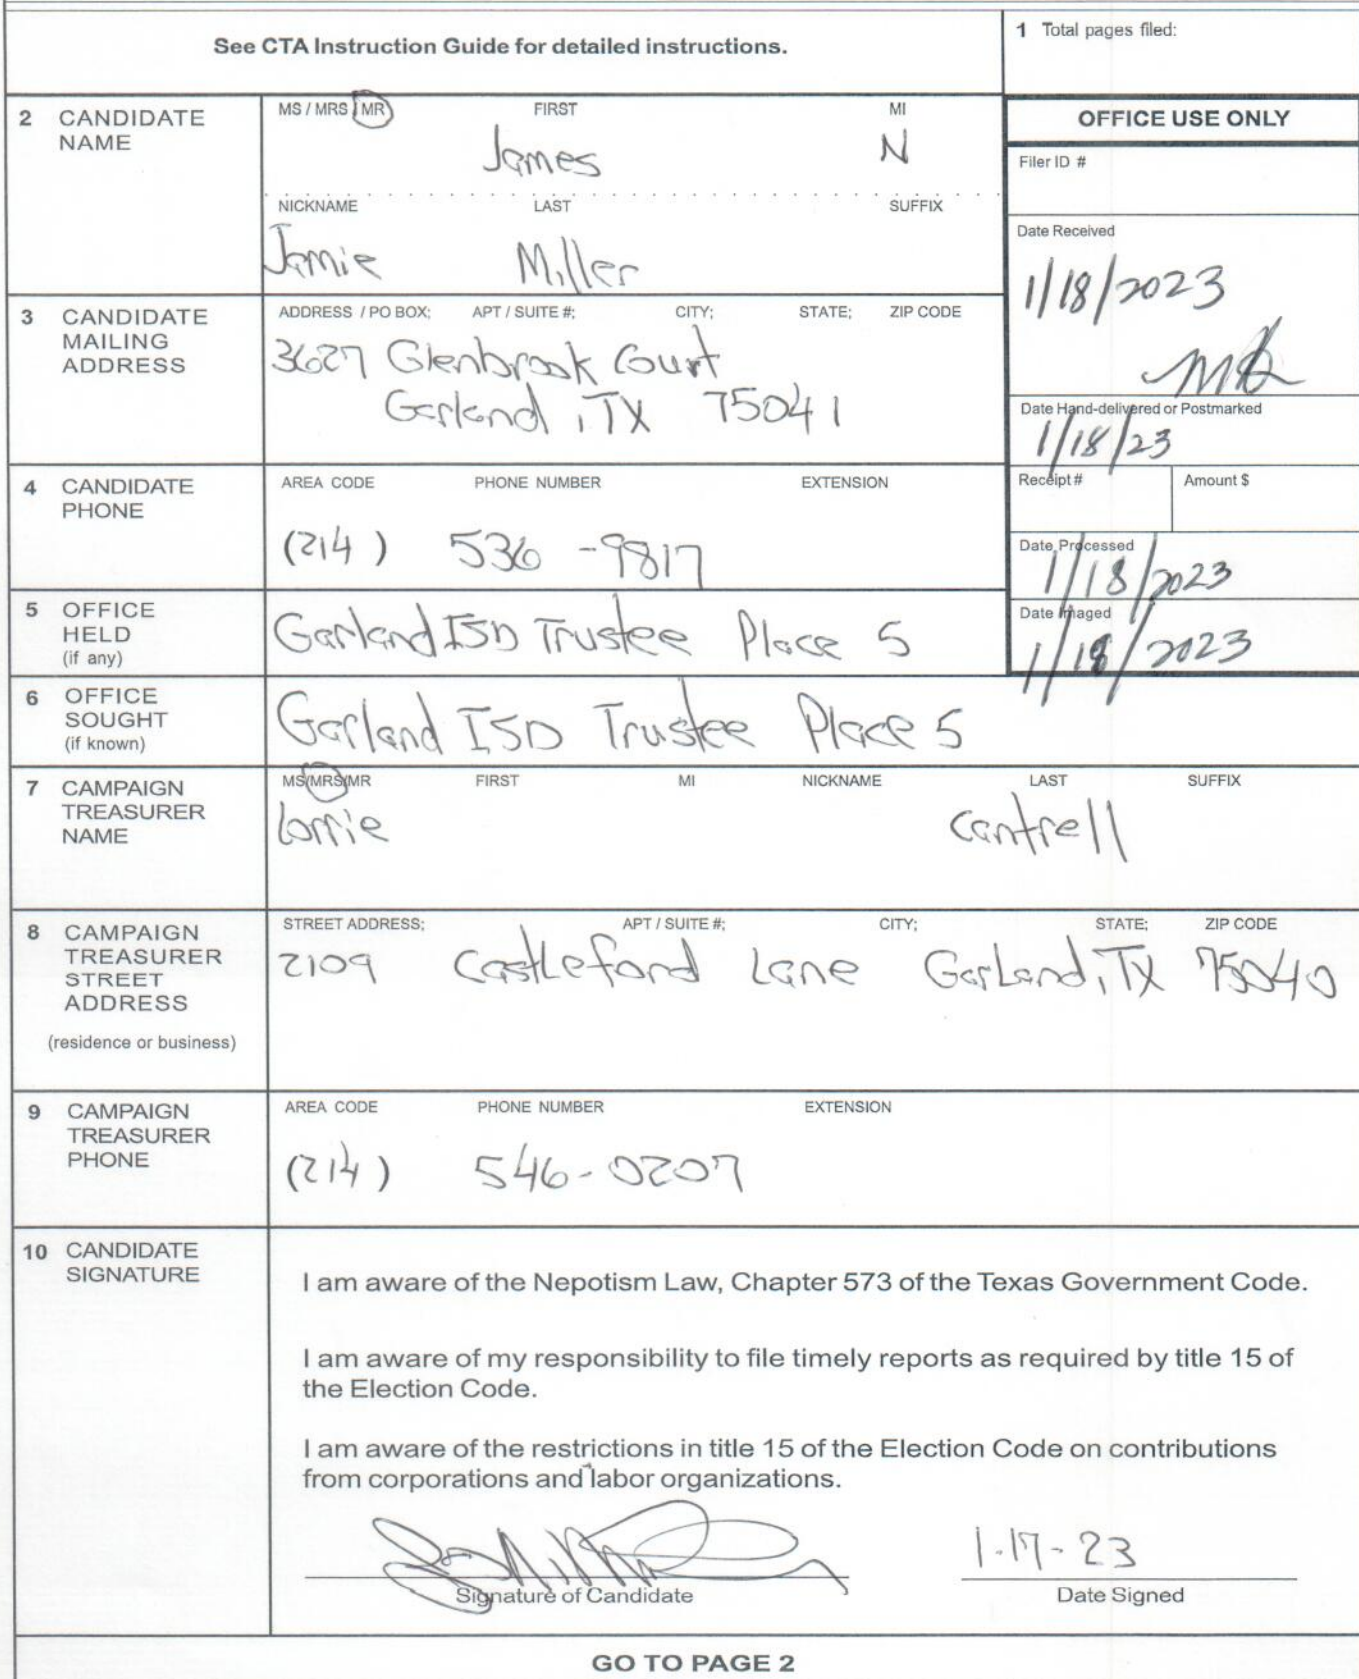 See CTA Instruction Guide for detailed instructions.
1 Total pages filed:
2 CANDIDATE NAME
MS / MRS / MR FIRST MI
James N
NICKNAME LAST SUFFIX
Jamie Miller
OFFICE USE ONLY
Filer ID #
Date Received
1/18/2023
3 CANDIDATE MAILING ADDRESS
ADDRESS / PO BOX; APT / SUITE #; CITY; STATE; ZIP CODE
3627 Glenbrook Court
Garland, TX 75041
Date Hand-delivered or Postmarked
1/18/23
4 CANDIDATE PHONE
AREA CODE PHONE NUMBER EXTENSION
(214) 536-9817
Receipt # Amount $
Date Processed
1/18/2023
5 OFFICE HELD (if any)
Garland ISD Trustee Place 5
Date Imaged
1/18/2023
6 OFFICE SOUGHT (if known)
Garland ISD Trustee Place 5
7 CAMPAIGN TREASURER NAME
MS/MRS/MR FIRST MI NICKNAME LAST SUFFIX
Lorrie Cantrell
8 CAMPAIGN TREASURER STREET ADDRESS
(residence or business)
STREET ADDRESS; APT / SUITE #; CITY; STATE; ZIP CODE
2109 Castleford Lane Garland, TX 75040
9 CAMPAIGN TREASURER PHONE
AREA CODE PHONE NUMBER EXTENSION
(214) 546-0207
10 CANDIDATE SIGNATURE
I am aware of the Nepotism Law, Chapter 573 of the Texas Government Code.
I am aware of my responsibility to file timely reports as required by title 15 of
the Election Code.
I am aware of the restrictions in title 15 of the Election Code on contributions
from corporations and labor organizations.
1-17-23
Signature of Candidate Date Signed
GO TO PAGE 2